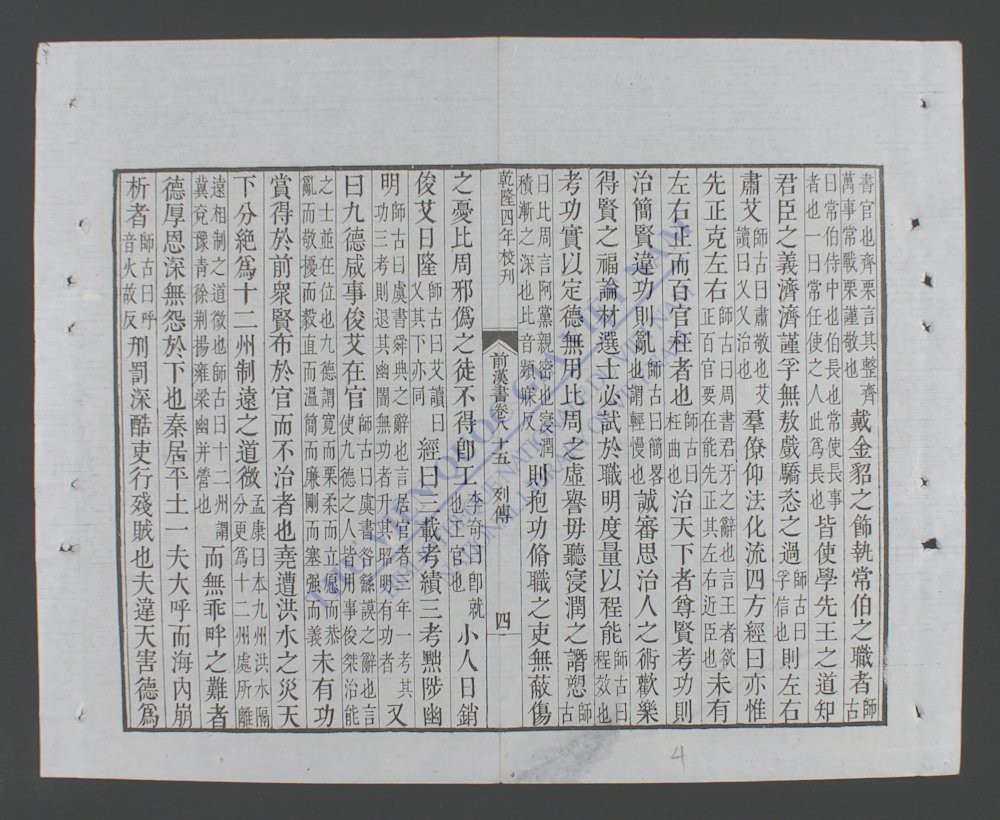 書官也齊栗言其整齊萬事常戰栗謹敬也戴金貂之飾執常伯之職者師古
曰常伯侍中也伯長也常使長事者也一曰常任使之人此爲長也皆使學先王之道知
君臣之義濟濟謹孚無敖戲驕恣之過師古曰孚信也則左右
肅艾師古曰肅敬也艾讀曰乂乂治也羣僚仰法化流四方經曰亦惟
先正克左右師古曰周書君牙之辭也言王者欲正百官要在能先正其左右近臣也未有
左右正而百官枉者也師古曰枉曲也治天下者尊賢考功則
治簡賢違功則亂師古曰簡畧也謂輕慢也誠審思治人之術歡樂
得賢之福論材選士必試於職明度量以程能師古曰程效也
考功實以定德無用比周之虛譽毋聽寖潤之譖愬師古
曰比周言阿黨親密也寖潤積漸之深也比音頻寐反則抱功脩職之吏無蔽傷
乾隆四年校刊
前漢書卷八十五 列傳 四
之憂比周邪僞之徒不得卽工李奇曰卽就也工官也小人日銷
俊艾日隆師古曰艾讀曰乂其下亦同經曰三載考績三考黜陟幽
明師古曰虞書舜典之辭也言居官者三年一考其功三考則退其幽闇無功者升其昭明有功者又
曰九德咸事俊艾在官師古曰虞書咎繇謨之辭也言使九德之人皆用事俊桀治能
之士並在位也九德謂寬而栗柔而立愿而恭亂而敬擾而毅直而溫簡而廉剛而塞彊而義未有功
賞得於前衆賢布於官而不治者也堯遭洪水之災天
下分絕爲十二州制遠之道微孟康曰本九州洪水隔分更爲十二州處所離
遠相制之道微也師古曰十二州謂冀兗豫青徐荆揚雍梁幽并營也而無乖畔之難者
德厚恩深無怨於下也秦居平土一夫大呼而海內崩
析者師古曰呼音火故反刑罰深酷吏行殘賊也夫違天害德爲
4